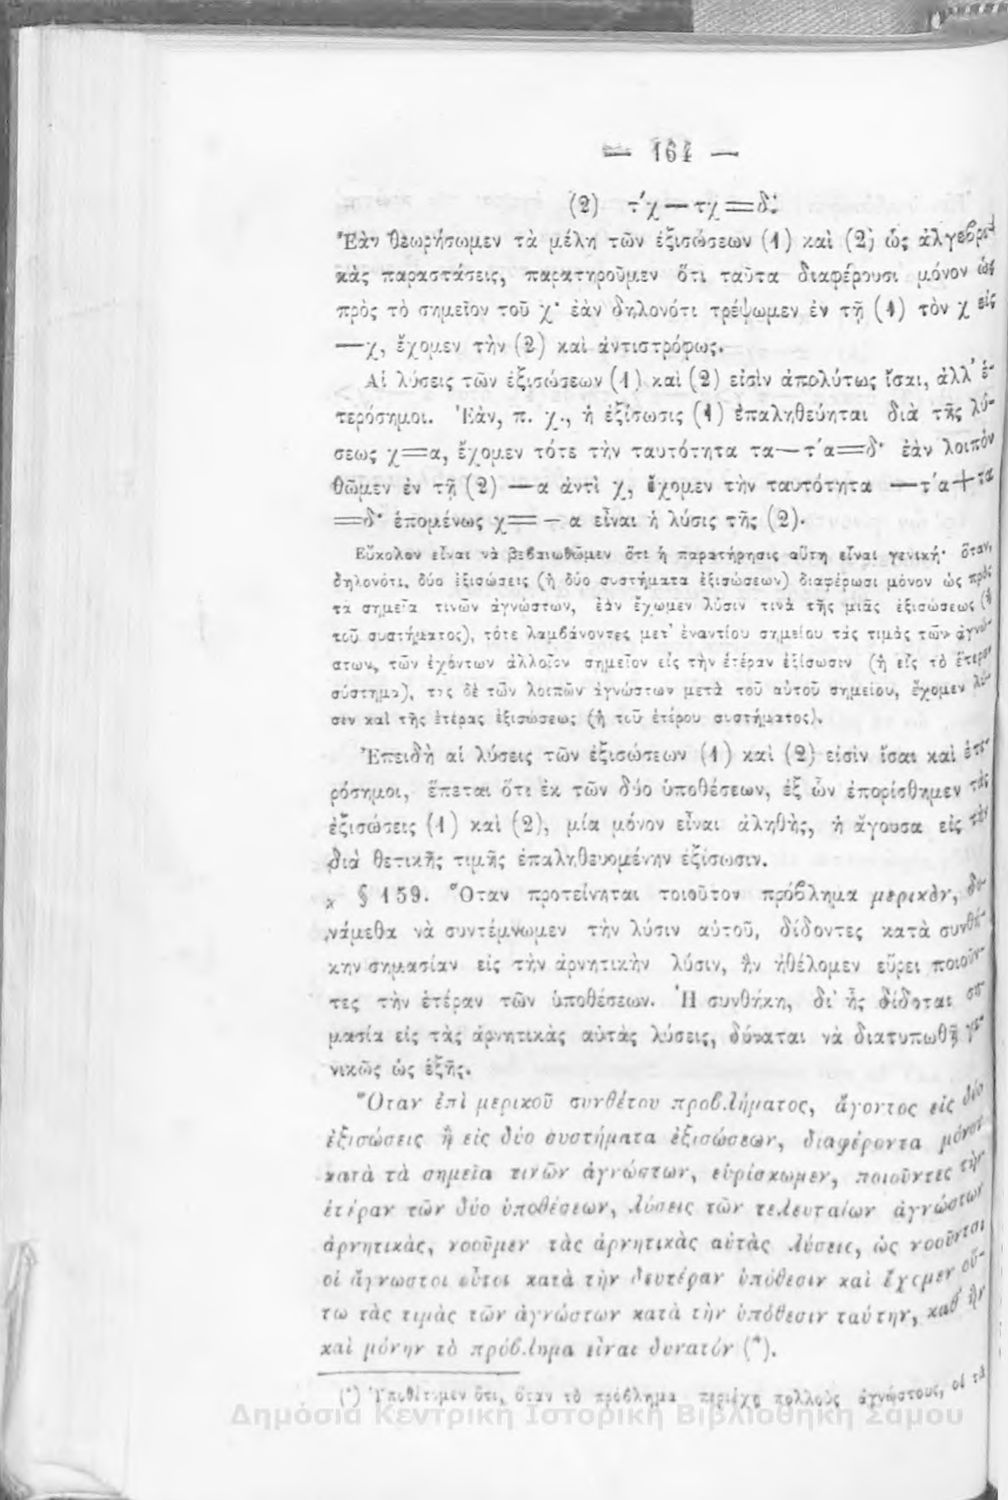 — 164 —
(2) τ'χ—τχ=δ.
Ἐὰν θεωρήσωμεν τὰ μέλη τῶν ἐξισώσεων (1) καὶ (2) ὡς ἀλγεβρι-
κὰς παραστάσεις, παρατηροῦμεν ὅτι ταῦτα διαφέρουσι μόνον ὡς
πρὸς τὸ σημεῖον τοῦ χ· ἐὰν δηλονότι τρέψωμεν ἐν τῇ (1) τὸν χ εἰς
—χ, ἔχομεν τὴν (2) καὶ ἀντιστρόφως.
Αἱ λύσεις τῶν ἐξισώσεων (1) καὶ (2) εἰσὶν ἀπολύτως ἴσαι, ἀλλ' ἑ-
τερόσημοι. Ἐὰν, π. χ., ἡ ἐξίσωσις (1) ἐπαληθεύηται διὰ τῆς λύ-
σεως χ=α, ἔχομεν τότε τὴν ταυτότητα τα—τ'α=δ· ἐὰν λοιπὸν
θῶμεν ἐν τῇ (2) —α ἀντὶ χ, ἔχομεν τὴν ταυτότητα —τ'α+τα
=δ· ἑπομένως χ=—α εἶναι ἡ λύσις τῆς (2).
Εὔκολον εἶναι νὰ βεβαιωθῶμεν ὅτι ἡ παρατήρησις αὕτη εἶναι γενική· ὅταν,
δηλονότι, δύο ἐξισώσεις (ἢ δύο συστήματα ἐξισώσεων) διαφέρωσι μόνον ὡς πρὸς
τὰ σημεῖα τινῶν ἀγνώστων, ἐὰν ἔχωμεν λύσιν τινὰ τῆς μιᾶς ἐξισώσεως (ἢ
τοῦ συστήματος), τότε λαμβάνοντες μετ' ἐναντίου σημείου τὰς τιμὰς τῶν ἀγνώ-
στων, τῶν ἐχόντων ἀλλοῖον σημεῖον εἰς τὴν ἑτέραν ἐξίσωσιν (ἢ εἰς τὸ ἕτερον
σύστημα), τὰς δὲ τῶν λοιπῶν ἀγνώστων μετὰ τοῦ αὐτοῦ σημείου, ἔχομεν λύ-
σιν καὶ τῆς ἑτέρας ἐξισώσεως (ἢ τοῦ ἑτέρου συστήματος).
Ἐπειδὴ αἱ λύσεις τῶν ἐξισώσεων (1) καὶ (2) εἰσὶν ἴσαι καὶ ἑτε-
ρόσημοι, ἕπεται ὅτι ἐκ τῶν δύο ὑποθέσεων, ἐξ ὧν ἐπορίσθημεν τὰς
ἐξισώσεις (1) καὶ (2), μία μόνον εἶναι ἀληθὴς, ἡ ἄγουσα εἰς τὴν
διὰ θετικῆς τιμῆς ἐπαληθευομένην ἐξίσωσιν.
§ 159. Ὅταν προτείνηται τοιοῦτον πρόβλημα μερικὸν, δυ-
νάμεθα νὰ συντέμνωμεν τὴν λύσιν αὐτοῦ, δίδοντες κατὰ συνθή-
κην σημασίαν εἰς τὴν ἀρνητικὴν λύσιν, ἣν ἠθέλομεν εὕρει ποιοῦν-
τες τὴν ἑτέραν τῶν ὑποθέσεων. Ἡ συνθήκη, δι' ἧς δίδοται ση-
μασία εἰς τὰς ἀρνητικὰς αὐτὰς λύσεις, δύναται νὰ διατυπωθῇ γε-
νικῶς ὡς ἑξῆς.
Ὅταν ἐπὶ μερικοῦ συνθέτου προβλήματος, ἄγοντος εἰς δύο
ἐξισώσεις ἢ εἰς δύο συστήματα ἐξισώσεων, διαφέροντα μόνον
κατὰ τὰ σημεῖα τινῶν ἀγνώστων, εὑρίσκωμεν, ποιοῦντες τὴν
ἑτέραν τῶν δύο ὑποθέσεων, λύσεις τῶν τελευταίων ἀγνώστων
ἀρνητικὰς, νοοῦμεν τὰς ἀρνητικὰς αὐτὰς λύσεις, ὡς νοοῦνται
οἱ ἄγνωστοι οὗτοι κατὰ τὴν δευτέραν ὑπόθεσιν καὶ ἔχομεν οὕ-
τω τὰς τιμὰς τῶν ἀγνώστων κατὰ τὴν ὑπόθεσιν ταύτην, καθ' ἣν
καὶ μόνην τὸ πρόβλημα εἶναι δυνατόν (*).
(*) Ὑποθέτομεν ὅτι, ὅταν τὸ πρόβλημα περιέχῃ πολλοὺς ἀγνώστους, οἱ τὰ
Δημόσια Κεντρική Ιστορική Βιβλιοθήκη Σάμου